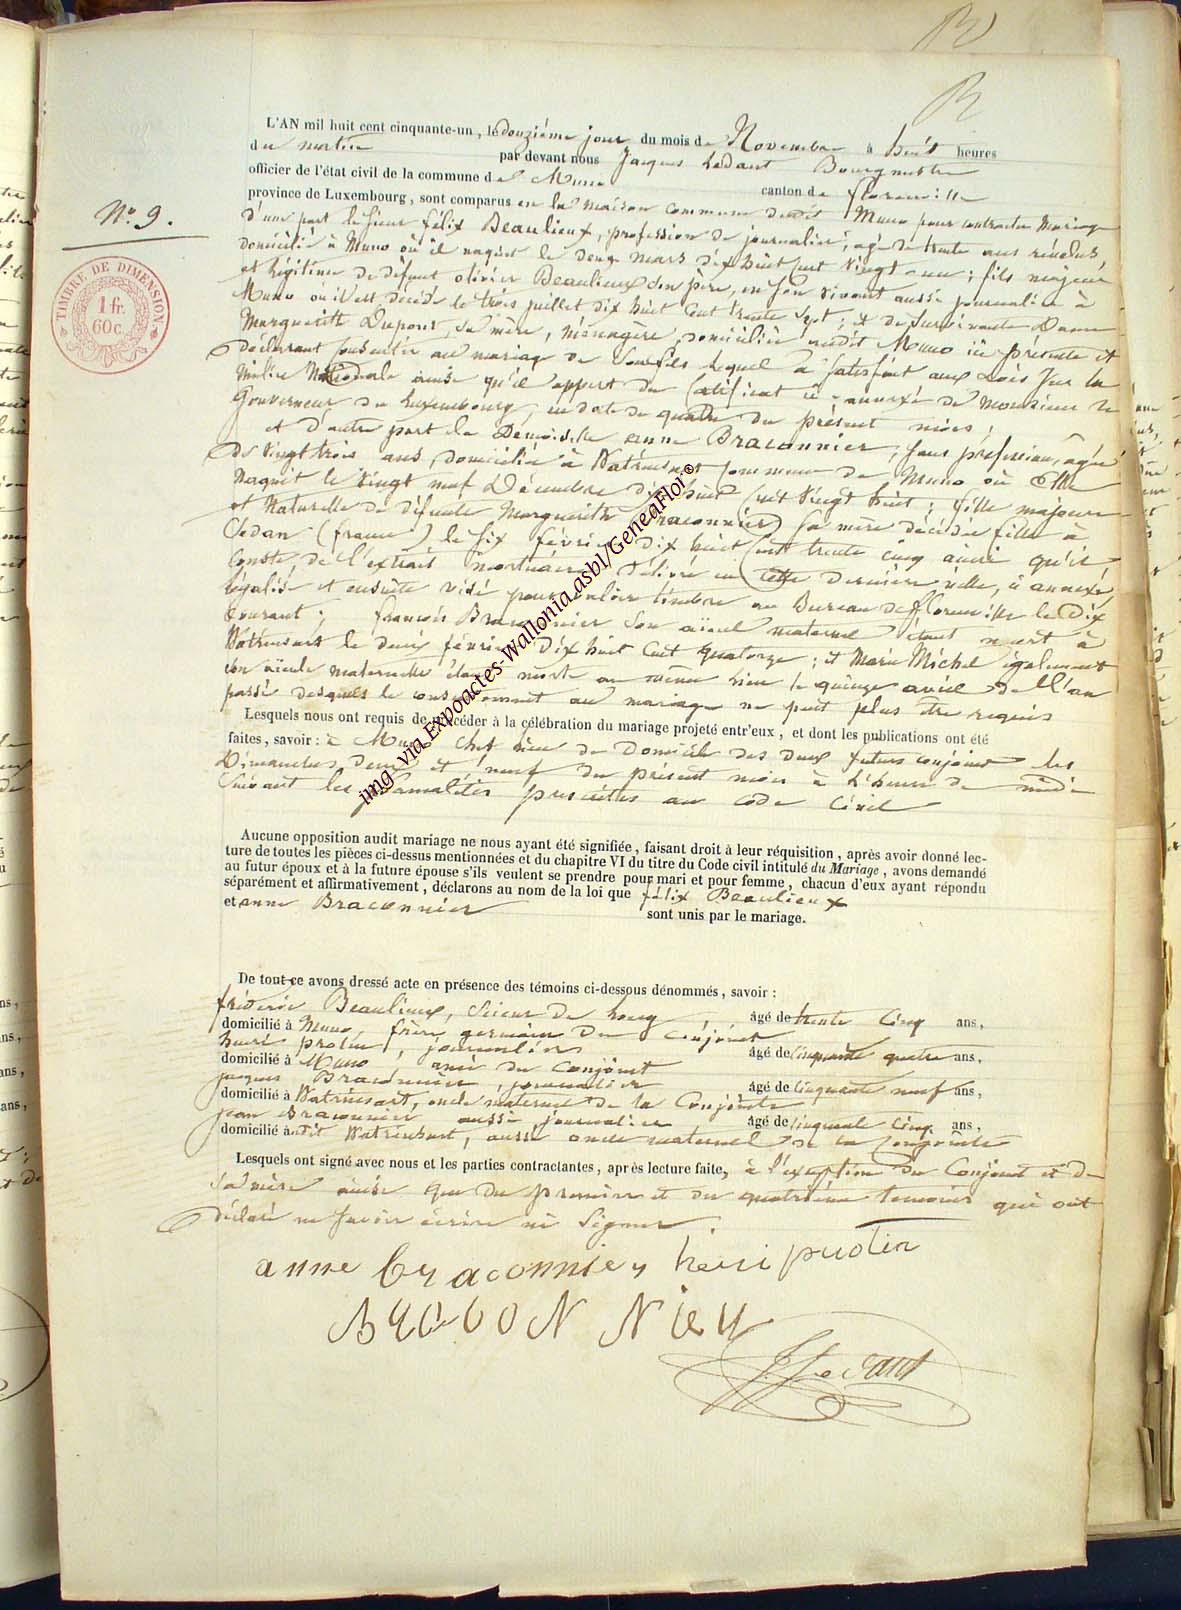 L'AN mil huit cent cinquante-un, le douzième jour du mois de Novembre à huit heures
du matin par devant nous Jacques Ledant Bourgmestre
officier de l'état civil de la commune de Muno canton de florenville
province de Luxembourg, sont comparus en la maison commune dudit Muno pour contracter Mariage
d'une part le sieur félix Beaulieux, profession de journalier, agé de trente ans révolus,
domicilié à Muno où il naquit le deux mars dix huit Cent Vingt-un; fils majeur
et légitime de défunt olivier Beaulieux son père, en son vivant aussi journalier à
Muno où il est décédé le trois juillet dix huit Cent trente sept; et de survivante Dame
Marguerith Dupont, sa mère, ménagère, domiciliée audit Muno ici présente et
déclarant consentir au mariage de son fils lequel a satisfait aux Lois sur la
Milice Nationale ainsi qu'il appert du Certificat ci-annexé de Monsieur le
Gouverneur du Luxembourg, en date du quatre du présent mois;
et d'autre part la Demoiselle anne Braconnier, sans profession, agée
de Vingt trois ans, domiciliée à Watrinsart commune de Muno où Elle
Naquit le Vingt neuf Décembre dix huit Cent Vingt huit; fille majeure
et Naturelle de défunte Marguerith Braconnier sa mère décédée fille à
Sedan (france) le six février dix huit Cent trente cinq ainsi qu'il
Conste de l'extrait mortuaire délivré en cette dernière ville, ci annexé,
légalisé et ensuite visé pour valoir timbre au Bureau de florenville le Dix
Courant; françois Braconnier son aïeul maternel étant mort à
Watrinsart le deux février Dix huit Cent quatorze; et Marie Michel également
son aïeule maternelle étant morte au même lieu le quinze avril de l'an
passé desquels le consentement au mariage ne peut plus être requis
Lesquels nous ont requis de procéder à la célébration du mariage projeté entr'eux, et dont les publications ont été
faites, savoir: à Muno Chef lieu de Domicile des deux futurs conjoints les
Dimanches deux et neuf du présent mois à l'heure de midi
suivant les formalités prescrites au Code Civil
Aucune opposition audit mariage ne nous ayant été signifiée, faisant droit à leur réquisition, après avoir donné lec-
ture de toutes les pièces ci-dessus mentionnées et du chapitre VI du titre du Code civil intitulé du Mariage, avons demandé
au futur époux et à la future épouse s'ils veulent se prendre pour mari et pour femme, chacun d'eux ayant répondu
séparément et affirmativement, déclarons au nom de la loi que félix Beaulieux
et anne Braconnier sont unis par le mariage.
De tout ce avons dressé acte en présence des témoins ci-dessous dénommés, savoir:
fréderic Beaulieux, Scieur de Long, âgé de trente Cinq ans,
domicilié à Muno, frère germain du Conjoint
henri protin, journalier âgé de Cinquante quatre ans,
domicilié à Muno ami du Conjoint
jacques Braconnier, journalier âgé de Cinquante neuf ans,
domicilié à Watrinsart, oncle maternel de la Conjointe
jean Braconnier aussi journalier âgé de Cinquante Cinq ans,
domicilié à dit Watrinsart, aussi oncle maternel de la Conjointe
Lesquels ont signé avec nous et les parties contractantes, après lecture faite, à l'exception du Conjoint et de
sa mère ainsi que du premier et du quatrième temoins qui ont
déclaré ne savoir écrire ni signer.
anne braconnier henri protin
BRACONNIER
J. Ledant
N° 9.
TIMBRE DE DIMENSION
1 fr.
60 c.
img via Expoactes-Wallonia.asbl/GeneaFloi®